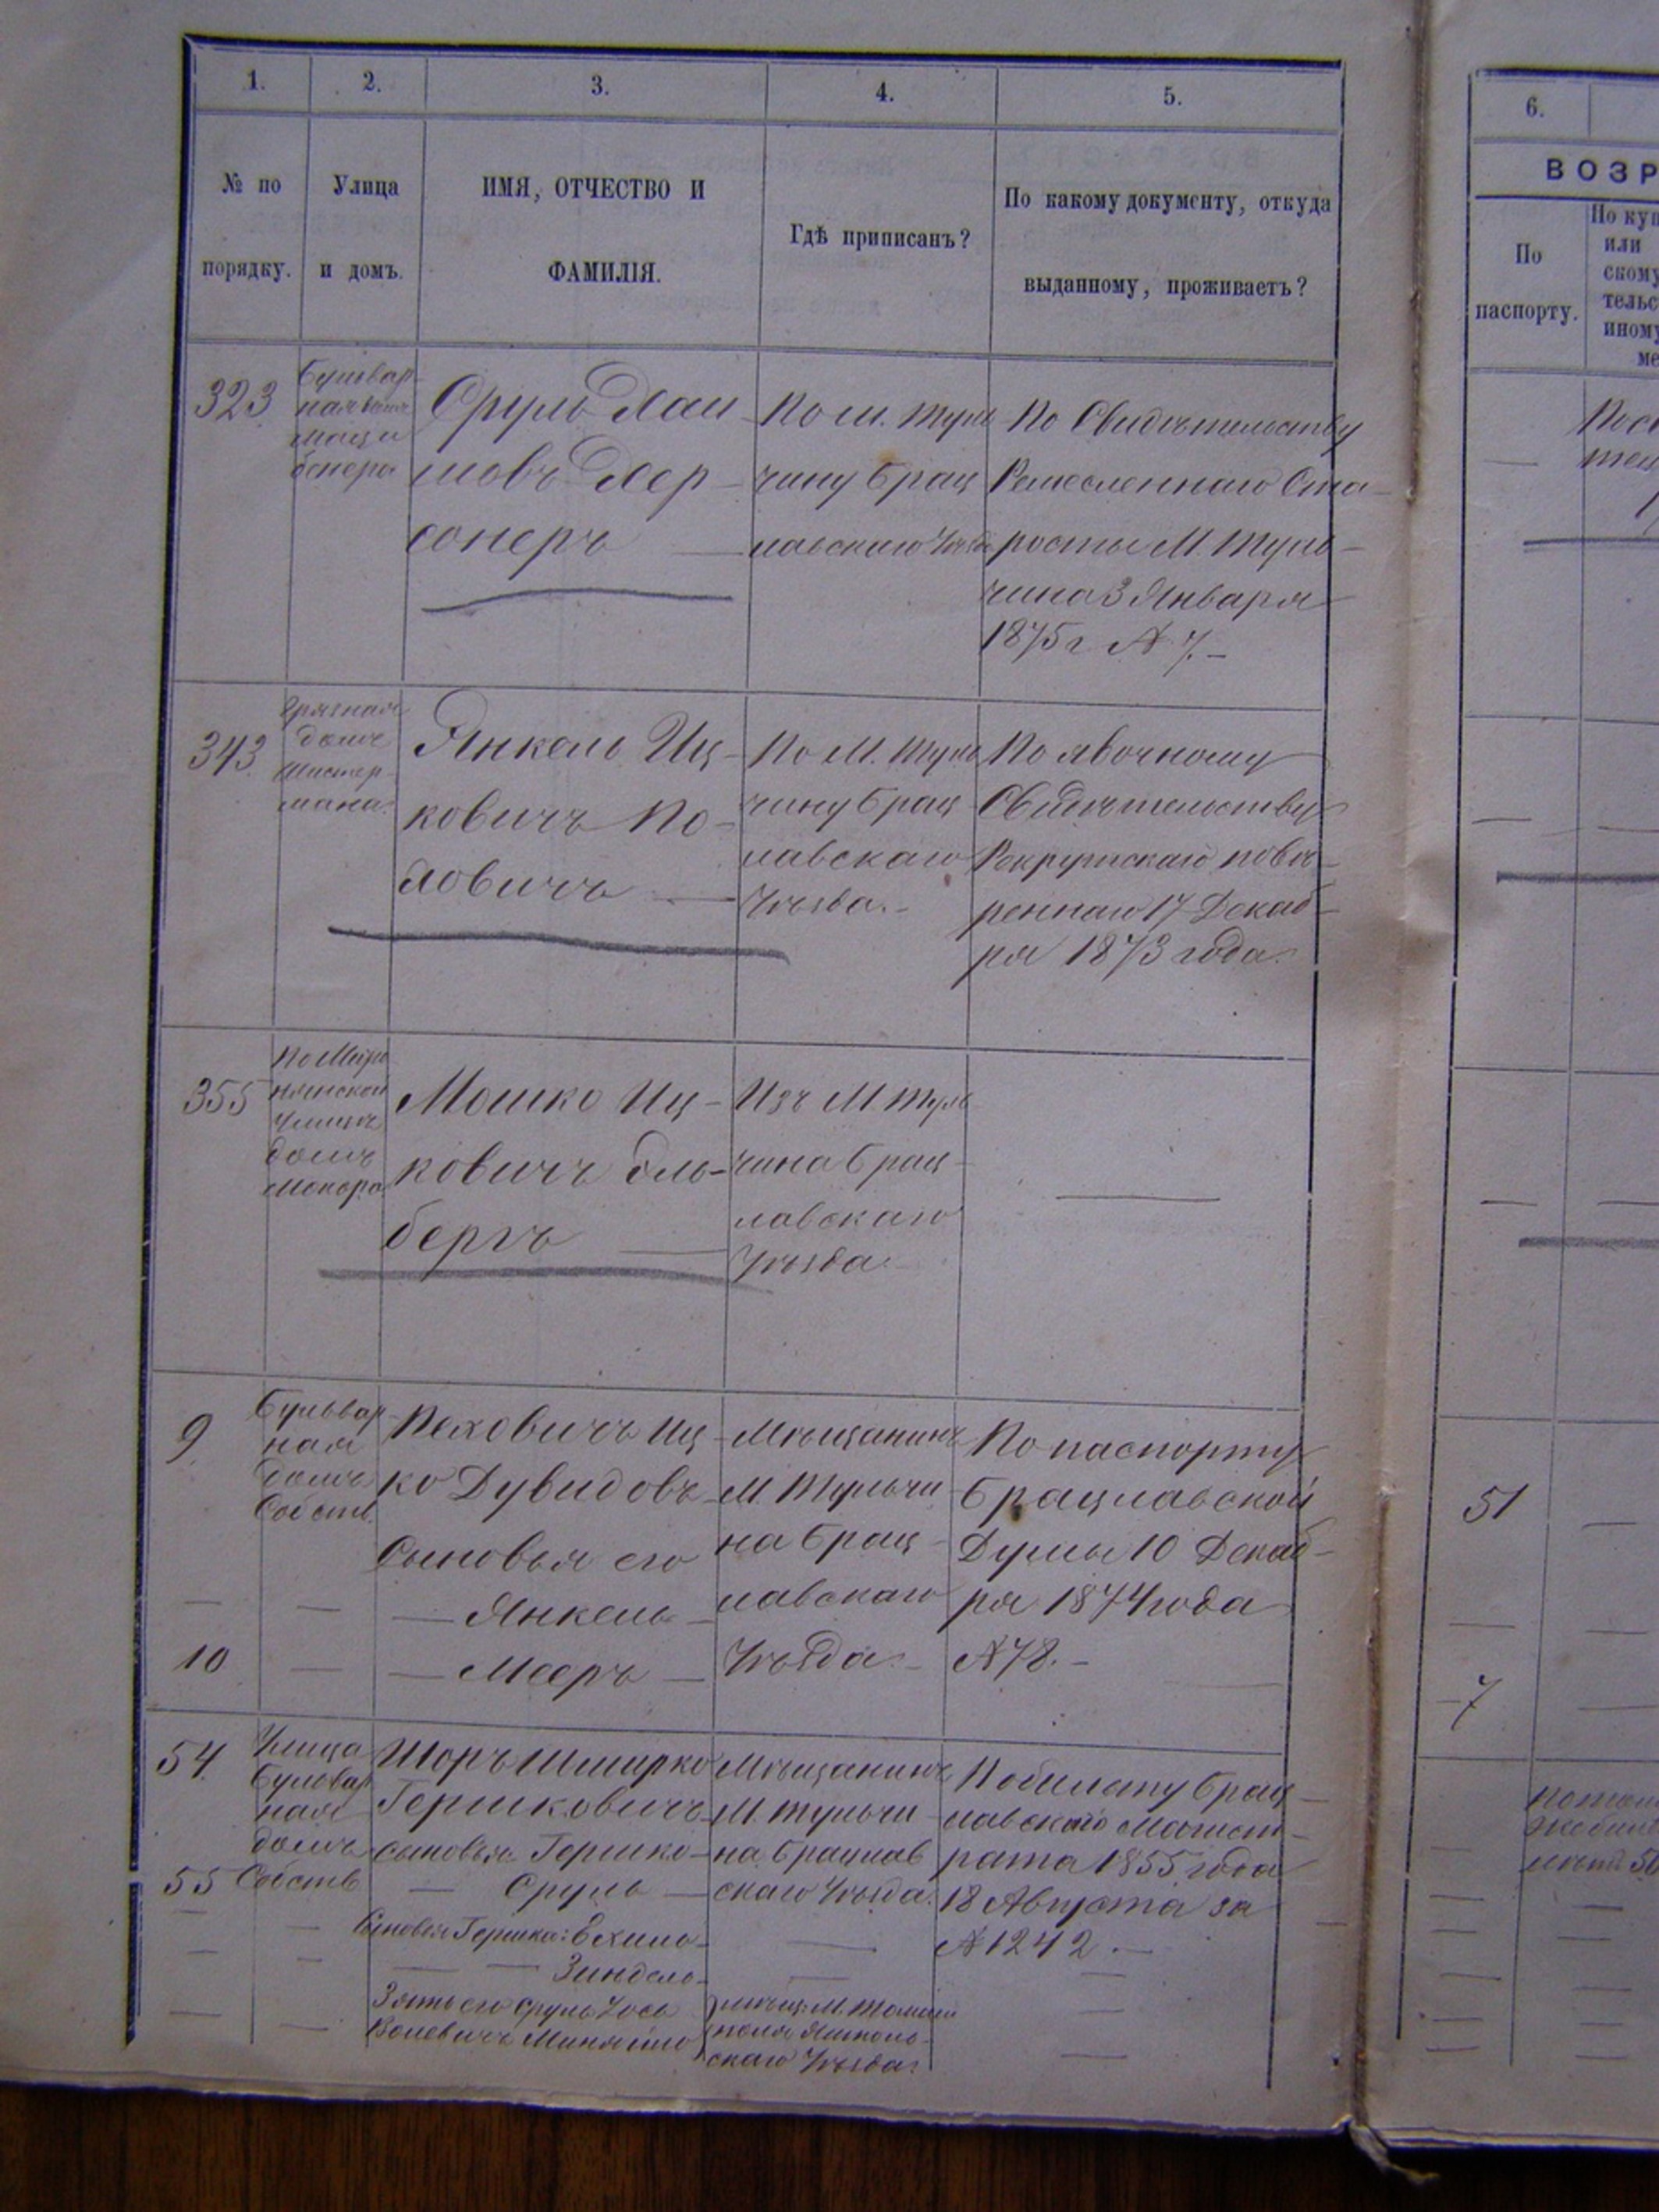 1.
2.
3.
4.
5.
№ по
порядку.
Улица
и домъ.
ИМЯ, ОТЧЕСТВО И
ФАМИЛІЯ.
Гдѣ приписанъ?
По какому документу, откуда
выданному, проживаетъ?
323
Бульвар-
Сруль
мовъ
сонеръ
По м. Туль
чину Брац
лавскаго Уѣзда
По Свидѣтельству
Ремесленнаго Ста-
росты М. Туль-
чина 3 Января
1875 г № 7.
343
Грязная
домъ
Шистер-
мана.
Янкель Иц-
ковичъ По-
ловичъ
По М. Туль
чину Брац
лавскаго
Уѣзда.
По явочному
Свидѣтельству
Рекрутскаго повѣ-
реннаго 17 Декаб-
ря 1873 года.
355
улицѣ
домъ
Мошко Иц-
ковичъ Оль-
бергъ
Изъ М. Туль
чина Брац-
лавскаго
Уѣзда
9
Бульвар-
ная
домъ
Собств.
Пеховичъ Иц-
ко Дувидовъ
Сыновья его
— Янкель
10
— Мееръ
Мѣщанинъ
М. Тульчи
на Брац-
лавскаго
Уѣзда.
По паспорту
Брацлавской
Думы 10 Декаб-
ря 1874 года
№ 78.
54.
Улица
Бульвар
ная
домъ
Собств
Шоръ Шмирко
Гершковичъ
сыновья Гершко
55
— Сруль
Сыновья Гершка: Ехиль
— Зиндель
Зять его Сруль Іось
Мѣщанинъ
М. Тульчи-
на Брацлав
скаго Уѣзда.
мѣщ. М. Томаш
поля Ямполь-
скаго Уѣзда.
По билету Брац-
лавскаго Магист-
рата 1855 года
18 Августа за
№ 1242.
6.
ВОЗР
По
паспорту.
По куп
или
скому
тельс
иному
ме
51
7